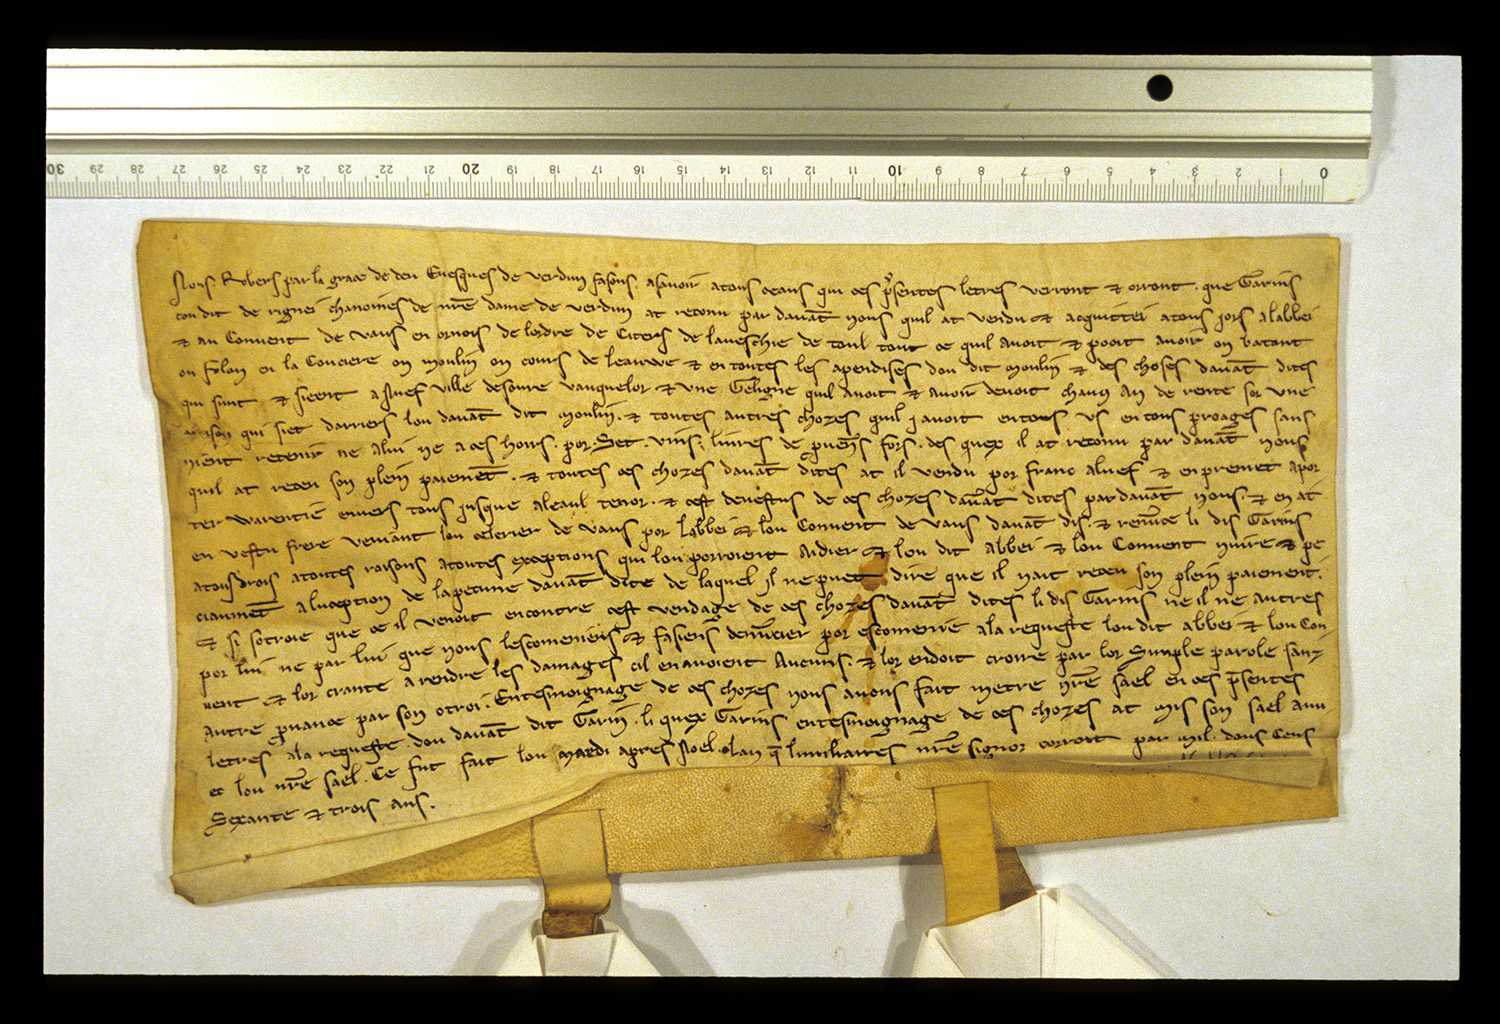 30 29 28 27 26 25 24 23 22 21 20 19 18 17 16 15 14 13 12 11 10 9 8 7 6 5 4 3 2 1 0
Nous . Robers par la grace de deu Evesques de verdun faisons . asavoir atous ceaus qui ces p'sentes letres verront & orront . que Garins
con dit de rignei chanoines de nr̄e dame de verdun at reconu par davāt nous quil at vendu & acquittei atous jors a labbei
& au Convent de vaus en ornois de lordre de Citers de laveschie de toul tout ce quil avoit & pooit avoir on batant
on folon en la Conciere on moulin on cours de leauwe & en toutes les apendises dou dit moulin & des choses davāt dites
qui sunt & sieent a Nuef ville desoure vauquelor & une Geligne quil avoit & avoir devoit chauc An de rente sor une
maison qui siet darriers lou davāt dit moulin . & toutes autres chozes quil javoit entous us entous proages sans
nient retenir ne a lui ne a ces hours . por Set . vins . livres de pvenīs fors . des quex il at reconu par davāt nous
quil at receu son plein paiemēt . & toutes ces chozes davāt dites at il vendu por franc aluef & en premet apor
ter warentie envers tous jusque aleaul tenor . & cest devestus de ces chozes davāt dites par davāt nous . & en at
en vestu frere veniant lou celerier de vaus por labbei & lou Convent de vaus davāt dis . & renūce li dis Garins
atous drois atoutes raisons atoutes exceptions qui lou porroient Aidier & lou dit Abbei & lou Convent nuire & pe
ciaumēt a luception de la pecune davāt dite de laquel il ne puet dire que il nait receu son plein paiement .
& si sotroie que ce il venoit encontre cest vendage de ces chozes davāt dites li dis Garins ne il ne Autres
por lui ne par lui que nous lescomeniens & fasiens denūcier por escomenie ala requeste lou dit abbei & lou Con
vent & lor crante a rendre les damages cil en avoient Aucuns . & lor en doit croire par lor Simple parole san
autre pruance par son otroi . En tesmoignage de ces chozes nous avons fait metre nr̄e sael en ces p̄sentes
letres ala requeste . dou davāt dit Garin . li quex Garins en tesmoignage de ces chozes at mis son sael avu
ec lou nr̄e sael . Ce fut fait lou mardi apres Noel . lan q̄ li miliaires nr̄e signor corroit par mil . dous Cens
Sexante & trois ans .